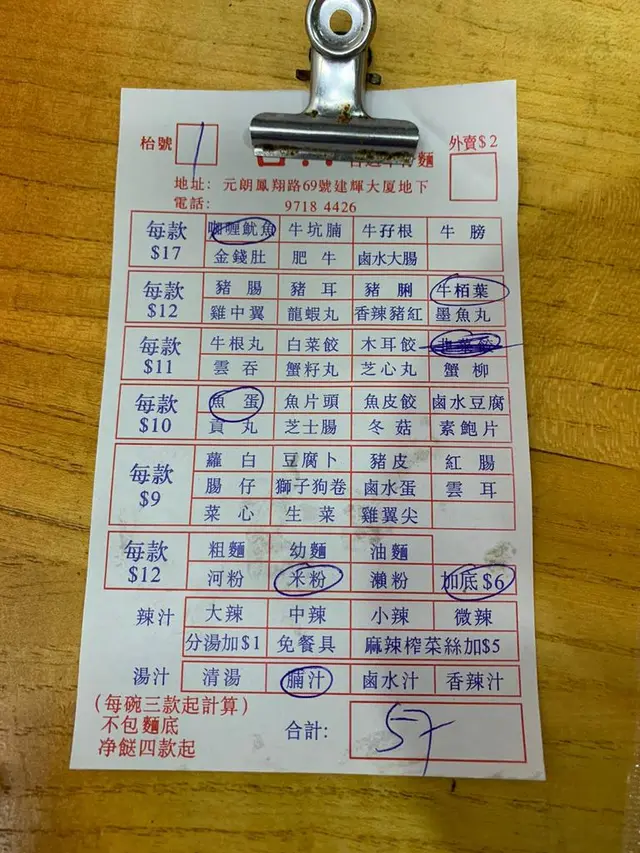 枱號 1 外賣$2
車仔麵
地址：元朗鳳翔路69號建輝大厦地下
電話： 9718 4426
每款 $17 咖喱魷魚 牛坑腩 牛孖根 牛膀
金錢肚 肥牛 鹵水大腸
每款 $12 豬腸 豬耳 豬脷 牛栢葉
雞中翼 龍蝦丸 香辣豬紅 墨魚丸
每款 $11 牛根丸 白菜餃 木耳餃
雲吞 蟹籽丸 芝心丸 蟹柳
每款 $10 魚蛋 魚片頭 魚皮餃 鹵水豆腐
貢丸 芝士腸 冬菇 素鮑片
每款 $9 蘿白 豆腐卜 豬皮 紅腸
腸仔 獅子狗卷 鹵水蛋 雲耳
菜心 生菜 雞翼尖
每款 $12 粗麵 幼麵 油麵
河粉 米粉 瀨粉 加底$6
辣汁 大辣 中辣 小辣 微辣
分湯加$1 免餐具 麻辣榨菜絲加$5
湯汁 清湯 腩汁 鹵水汁 香辣汁
(每碗三款起計算)
不包麵底
净餸四款起
合計: 57